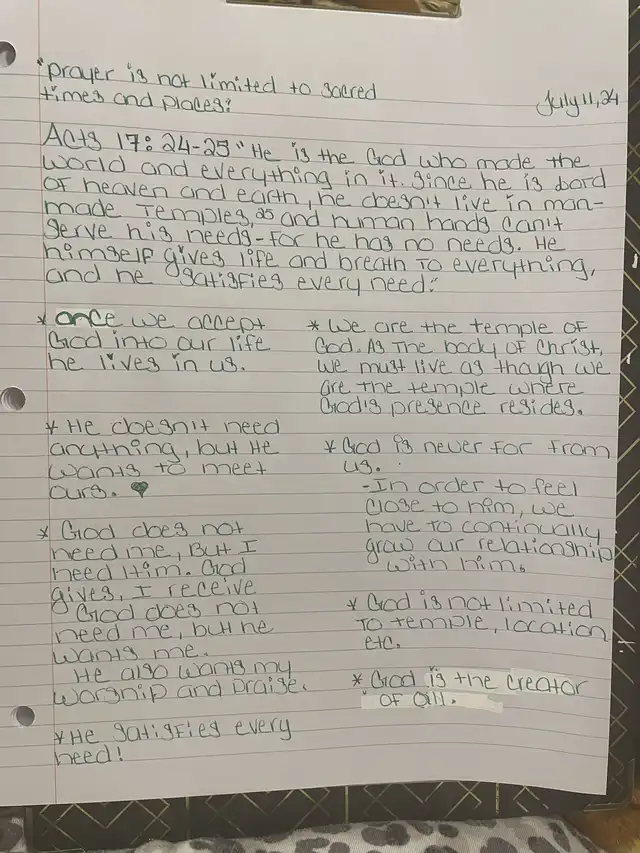 "prayer is not limited to sacred
times and places"
July 11, 24
Acts 17:24-25 "He is the God who made the
world and everything in it. Since he is Lord
of heaven and earth, he doesn't live in man-
made Temples, 25 and human hands can't
serve his needs-for he has no needs. He
himself gives life and breath to everything,
and he satisfies every need."
* once we accept
God into our life
he lives in us.
* He doesn't need
anything, but He
wants to meet
ours. ♥
* God does not
need me, But I
need Him. God
gives, I receive
God does not
need me, but he
wants me.
He also wants my
worship and praise.
* He satisfies every
need!
* We are the temple of
God. As The body of Christ,
we must live as though we
are the temple where
God's presence resides.
* God is never far from
us.
-In order to feel
close to him, we
have to continually
grow our relationship
with him.
* God is not limited
to temple, location
etc.
* God is the creator
of all.